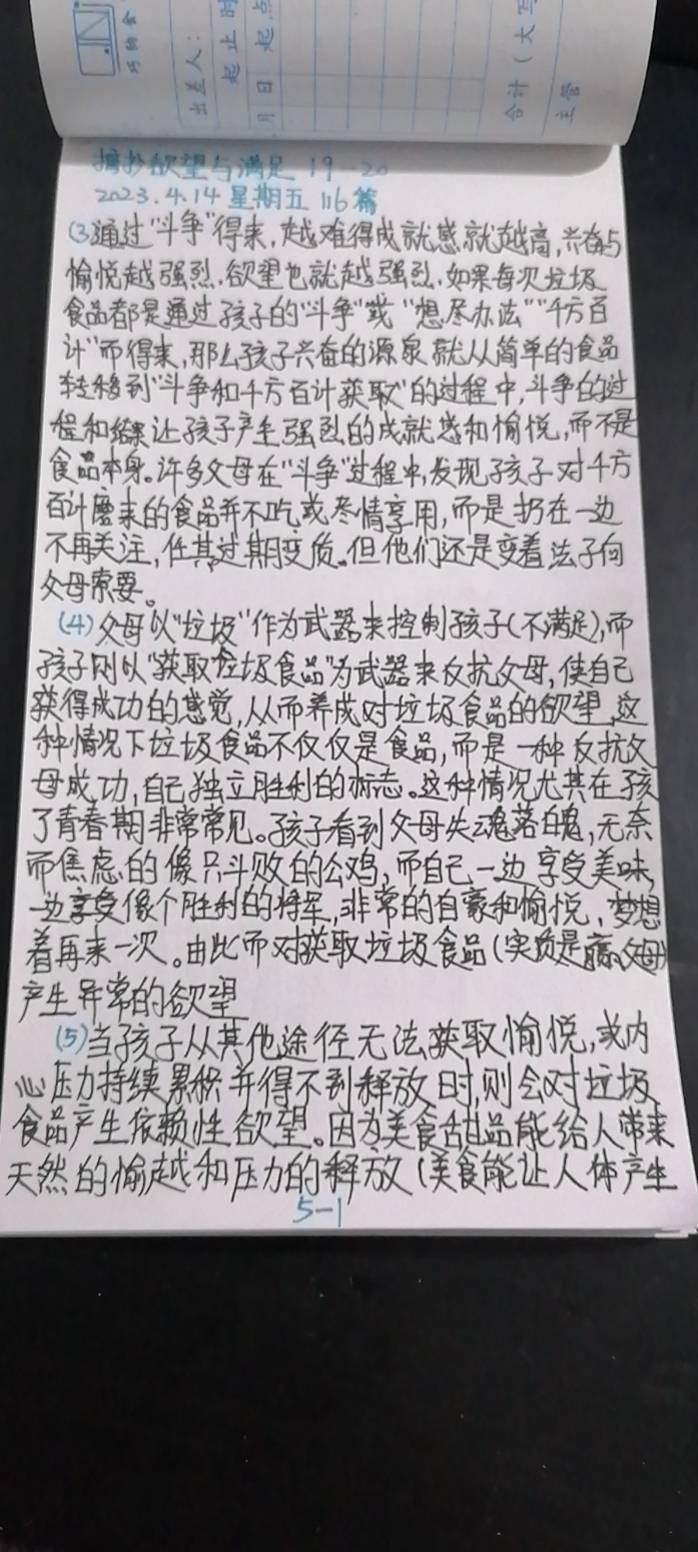 巧的会
出差人：
起止时
月日起点
合计（大写
主管
摘抄欲望与满足 19—20
2023.4.14 星期五 116篇
(3)通过“斗争”得来，越难得成就感就越高，兴奋与
愉悦越强烈，欲望也就越强烈，如果每次垃圾
食品都是通过孩子的“斗争”或“想尽办法”“千方百
计”而得来，那么孩子兴奋的源泉就从简单的食品
转移到“斗争和千方百计获取”的过程中，斗争的过
程和结果让孩子产生强烈的成就感和愉悦，而不是
食品本身。许多父母在“斗争”过程中，发现孩子对千方
百计磨来的食品并不吃或尽情享用，而是扔在一边
不再关注，任其过期变质。但他们还是变着法子向
父母索要。
(4)父母以“垃圾”作为武器来控制孩子(不满足)，而
孩子则以“获取垃圾食品”为武器来反抗父母，使自己
获得成功的感觉，从而养成对垃圾食品的欲望，这
种情况下垃圾食品不仅仅是食品，而是一种反抗父
母成功，自己独立胜利的标志。这种情况尤其在孩
了青春期非常常见。孩子看到父母失魂落魄，无奈
而焦虑的像只斗败的公鸡，而自己一边享受美味，
一边享受像个胜利的将军，非常的自豪和愉悦，梦想
着再来一次。由此而对获取垃圾食品(实质是赢父母)
产生异常的欲望
(5)当孩子从其他途径无法获取愉悦，或内
心压力持续累积并得不到释放时，则会对垃圾
食品产生依赖性欲望。因为美食甜品能给人带来
天然的愉越和压力的释放(美食能让人体产生
5-1